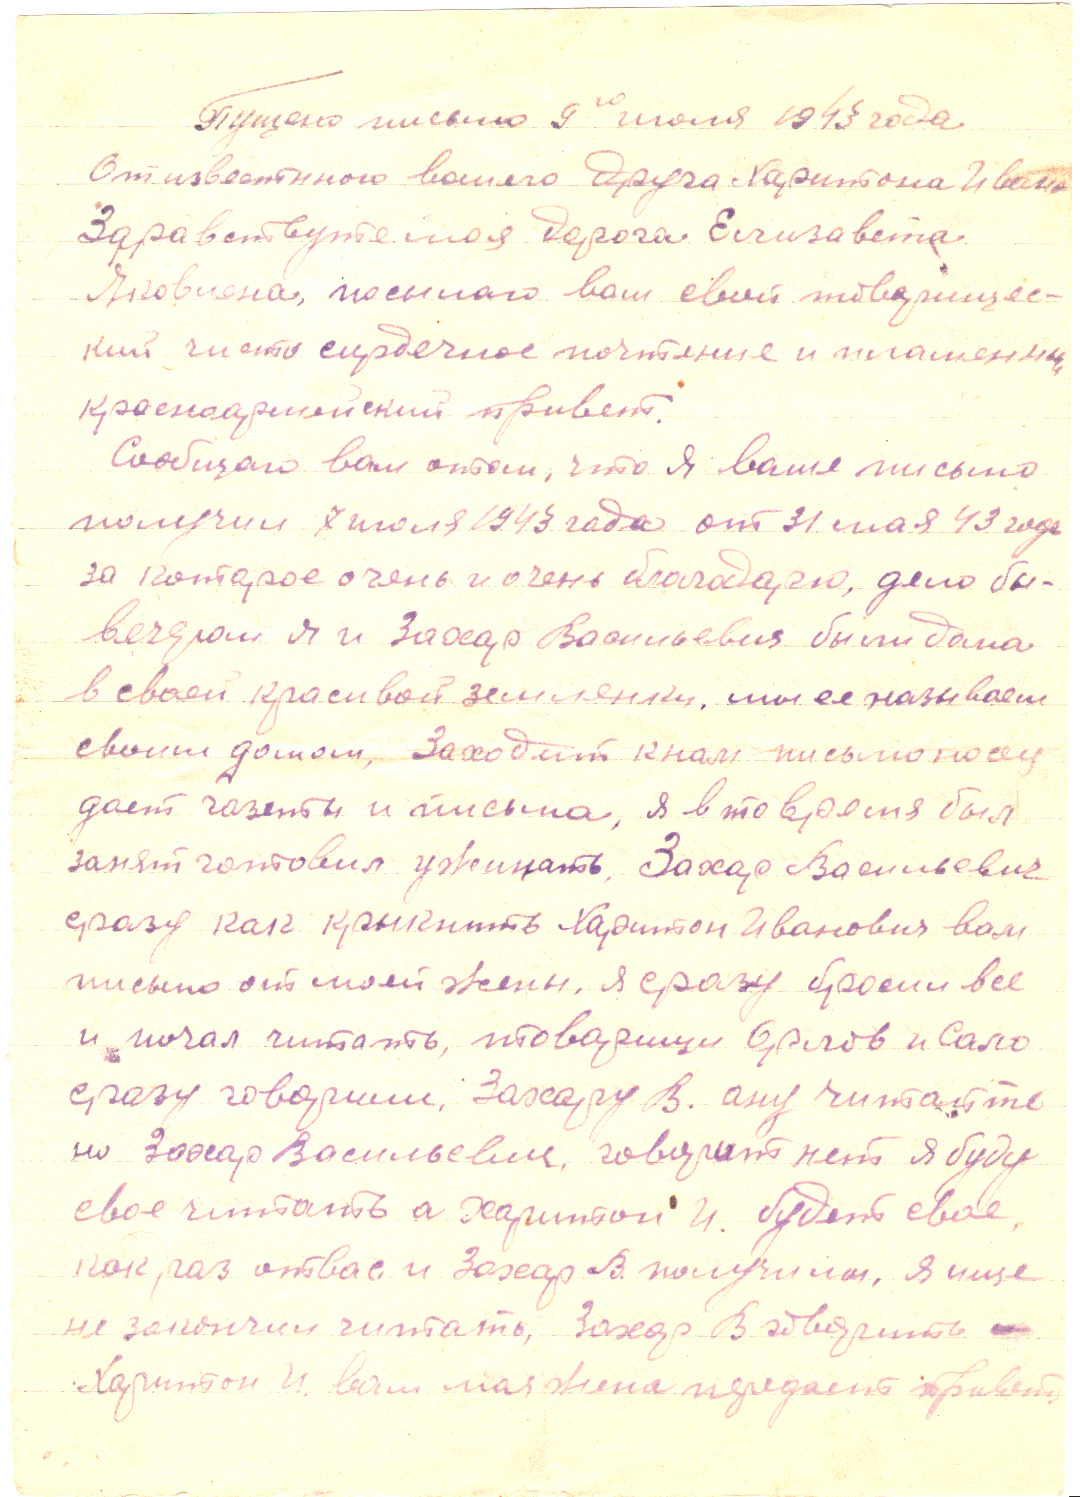 Пущено письмо 9го июля 1943 года
От известного вашего друга Харитона Ивано
Здравствуйте моя дорога Елизавета
Яковлена, посылаю вам свой товарищес-
кий чисто сердечное почтение и пламенны
красноармейский привет.
Сообщаю вам отом, что я ваше письмо
получил 7 июля 1943 года от 31 мая 43 года
за которое очень и очень благодарю, дело бы-
вечером я и Захар Васильевич были дома
в своей красивой землянки. мы ее называем
своим домом, Заходит кнам письмоносец
дает газеты и письма, я в то время был
занят готовил ужинать. Захар Васильевич
сразу как крыкнить Харитон Иванович вам
письмо от моей жены. я сразу бросил все
и почал читать, товарищи Орлов и Сало
сразу говорили, Захару В. ану читайте
но Захар Васильевич, говорит нет я буду
свое читать а Харитон И. будет свое,
как раз отвас и Захар В. получили, я ище
не закончил читать, Захар В говорить –
Харитон И. вам моя жена передает привет